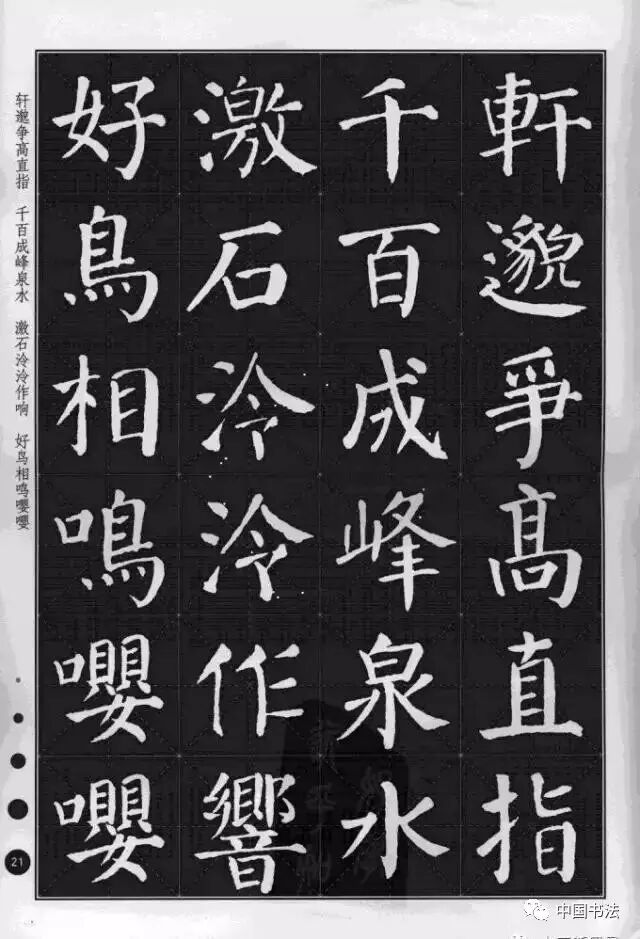 軒邈爭髙直指
千百成峰泉水
激石泠泠作響
好鳥相鳴嚶嚶
轩邈争高直指　千百成峰泉水　激石泠泠作响　好鸟相鸣嘤嘤
21
中国书法